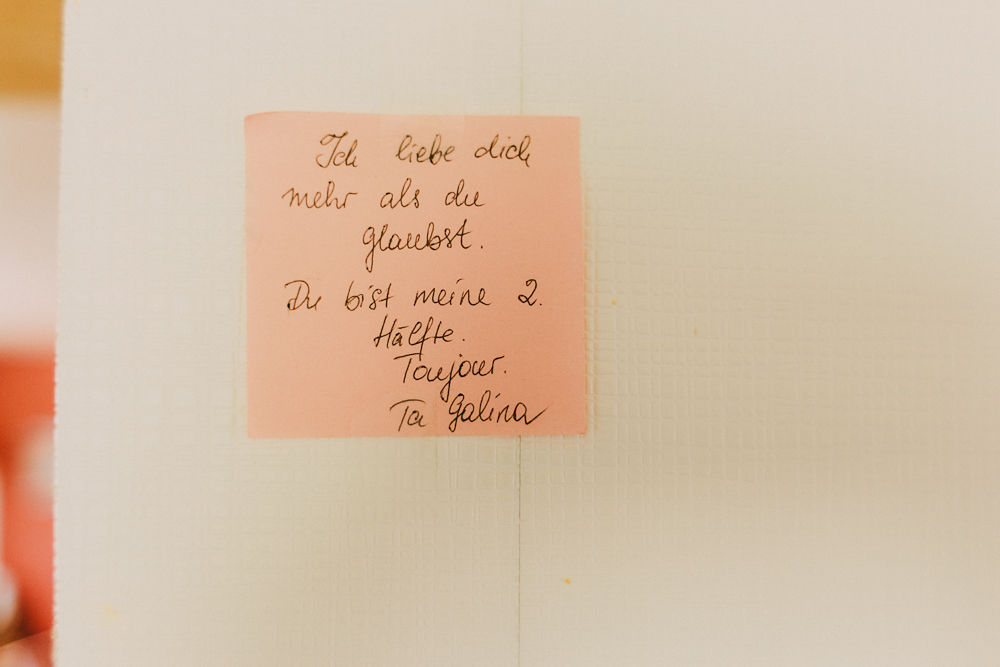 Ich liebe dich
mehr als du
glaubst.
Du bist meine 2.
Hälfte.
Toujour.
Ta Galina